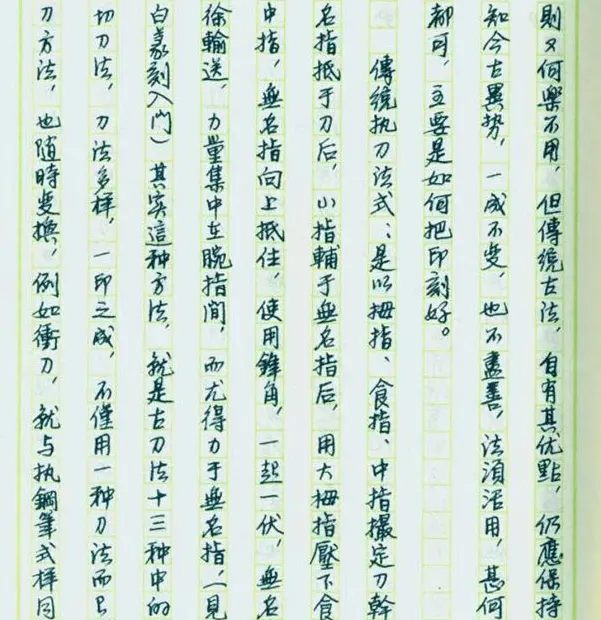 則又何樂不用，但傳統古法，自有其优點，仍應保持
知今古異勢，一成不变，也不盡善，法須活用，甚何
都可，主要是如何把印刻好。
傳統执刀法式：是以拇指、食指、中指撮定刀幹
名指抵于刀后，小指輔于無名指后，用大拇指壓下食
中指，無名指向上抵住，使用鋒角，一起一伏，無名
徐輸送，力量集中在腕指间，而尤得力于無名指，（見
白篆刻入门）其实這种方法，就是古刀法十三种中的
切刀法，刀法多样，一印之成，不僅用一种刀法而已
刀方法，也随時变换，例如衝刀，就与执鋼筆式样同